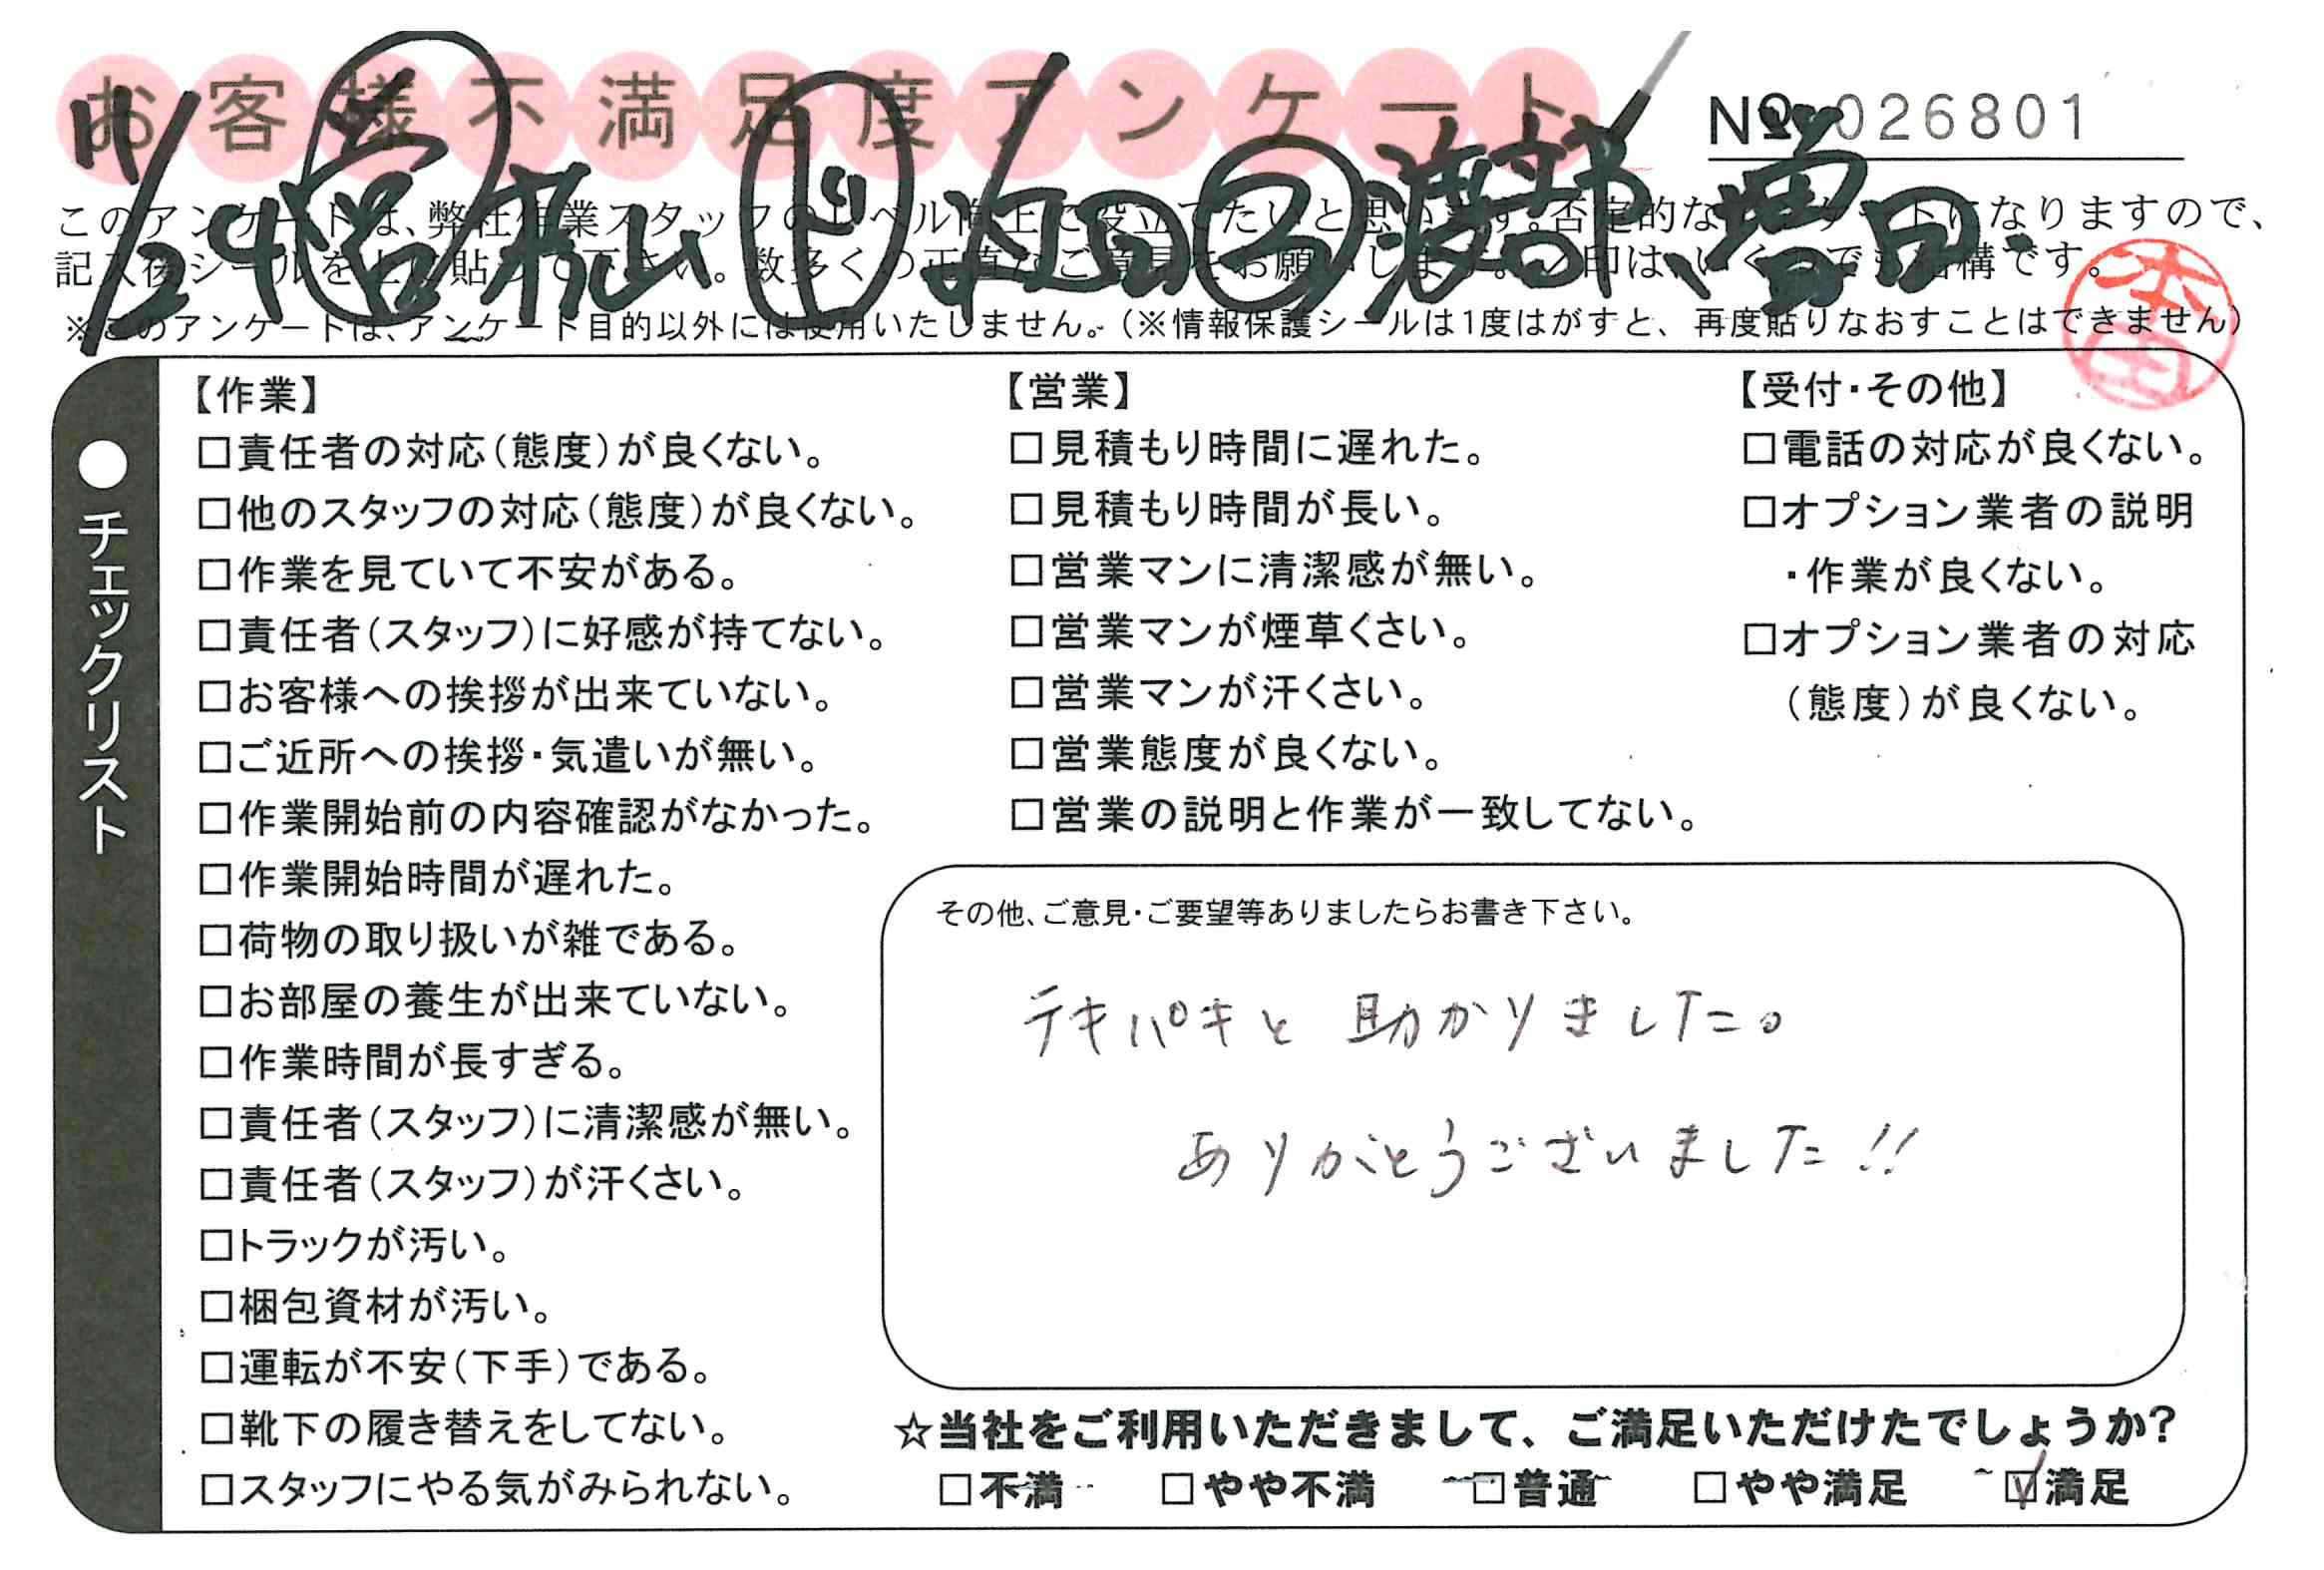 お客様不満足度アンケート
№ 026801
11/24 営 秋山 ド 大江田 2 渡部、増田.
このアンケートは、弊社作業スタッフのレベル向上に役立てたいと思います。否定的なアンケートになりますので、
記入後シールを上に貼って下さい。数多くの正直なご意見をお願いします。✓印は、いくつでも結構です。
本田
※このアンケートは、アンケート目的以外には使用いたしません。(※情報保護シールは1度はがすと、再度貼りなおすことはできません)
●チェックリスト
【作業】
□責任者の対応(態度)が良くない。
□他のスタッフの対応(態度)が良くない。
□作業を見ていて不安がある。
□責任者(スタッフ)に好感が持てない。
□お客様への挨拶が出来ていない。
□ご近所への挨拶・気遣いが無い。
□作業開始前の内容確認がなかった。
□作業開始時間が遅れた。
□荷物の取り扱いが雑である。
□お部屋の養生が出来ていない。
□作業時間が長すぎる。
□責任者(スタッフ)に清潔感が無い。
□責任者(スタッフ)が汗くさい。
□トラックが汚い。
□梱包資材が汚い。
□運転が不安(下手)である。
□靴下の履き替えをしてない。
□スタッフにやる気がみられない。
【営業】
□見積もり時間に遅れた。
□見積もり時間が長い。
□営業マンに清潔感が無い。
□営業マンが煙草くさい。
□営業マンが汗くさい。
□営業態度が良くない。
□営業の説明と作業が一致してない。
【受付・その他】
□電話の対応が良くない。
□オプション業者の説明
・作業が良くない。
□オプション業者の対応
(態度)が良くない。
その他、ご意見・ご要望等ありましたらお書き下さい。
テキパキと 助かりました。
ありがとうございました!!
☆当社をご利用いただきまして、ご満足いただけたでしょうか?
□不満 □やや不満 □普通 □やや満足 ☑満足